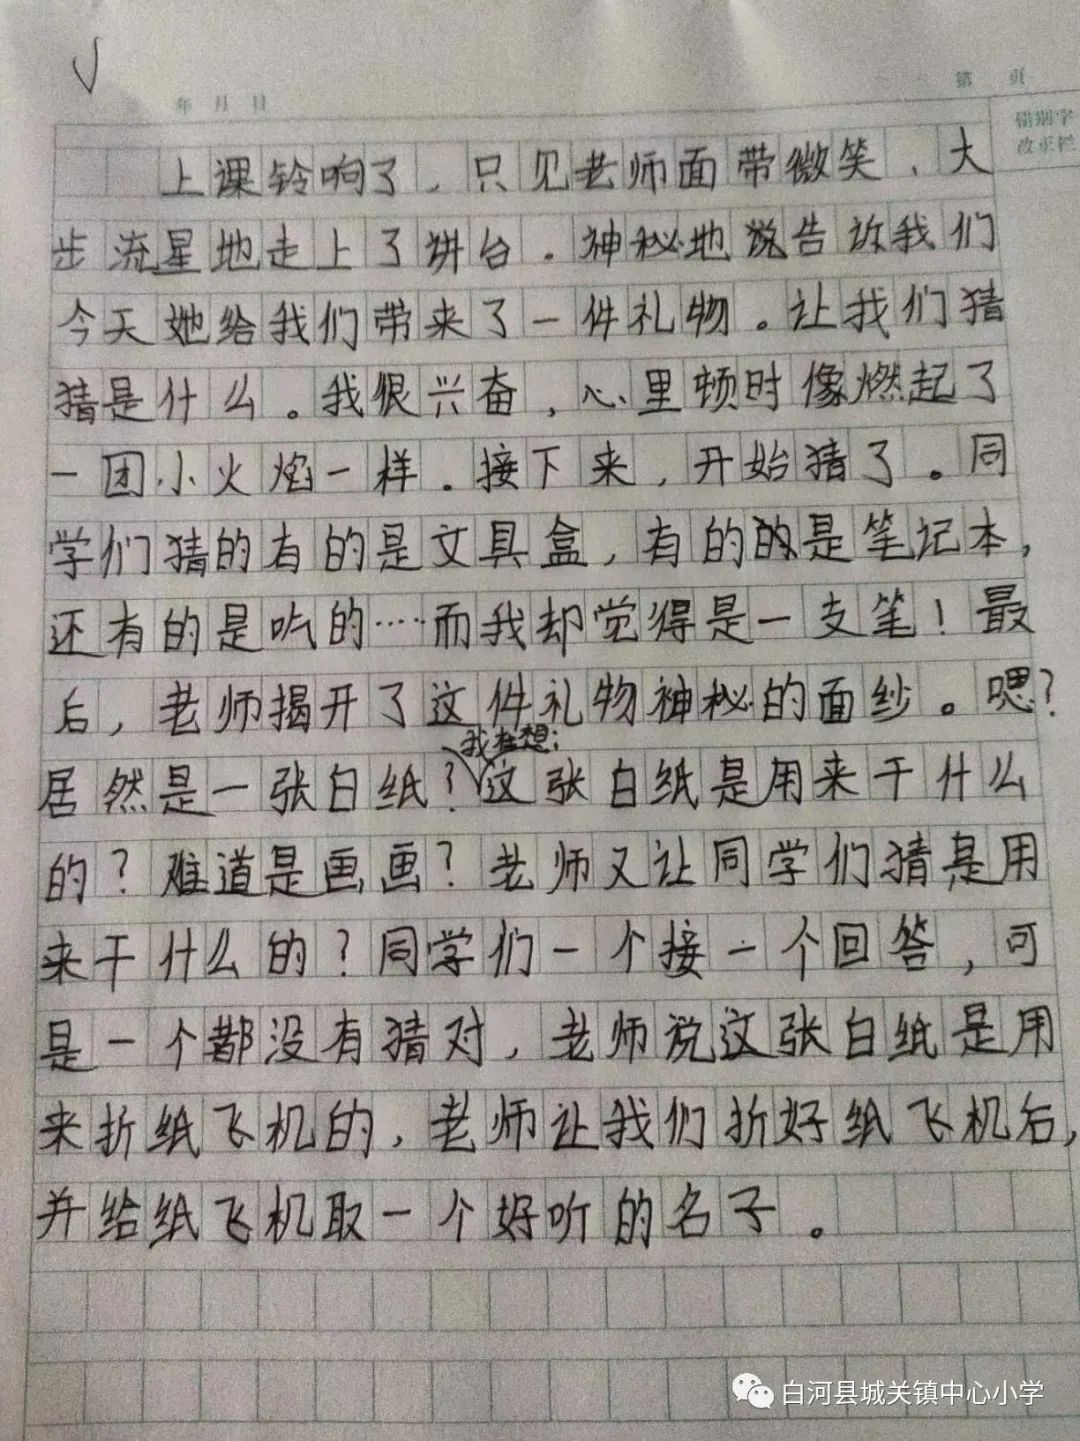 年 月 日
第 页
错别字
改正栏
上课铃响了，只见老师面带微笑、大
步流星地走上了讲台。神秘地说告诉我们
今天她给我们带来了一件礼物。让我们猜
猜是什么。我很兴奋，心里顿时像燃起了
一团小火焰一样。接下来，开始猜了。同
学们猜的有的是文具盒，有的的是笔记本，
还有的是吃的……而我却觉得是一支笔！最
后，老师揭开了这件礼物神秘的面纱。嗯？
我在想：
居然是一张白纸？这张白纸是用来干什么
的？难道是画画？老师又让同学们猜是用
来干什么的？同学们一个接一个回答，可
是一个都没有猜对，老师说这张白纸是用
来折纸飞机的，老师让我们折好纸飞机后，
并给纸飞机取一个好听的名子。
白河县城关镇中心小学